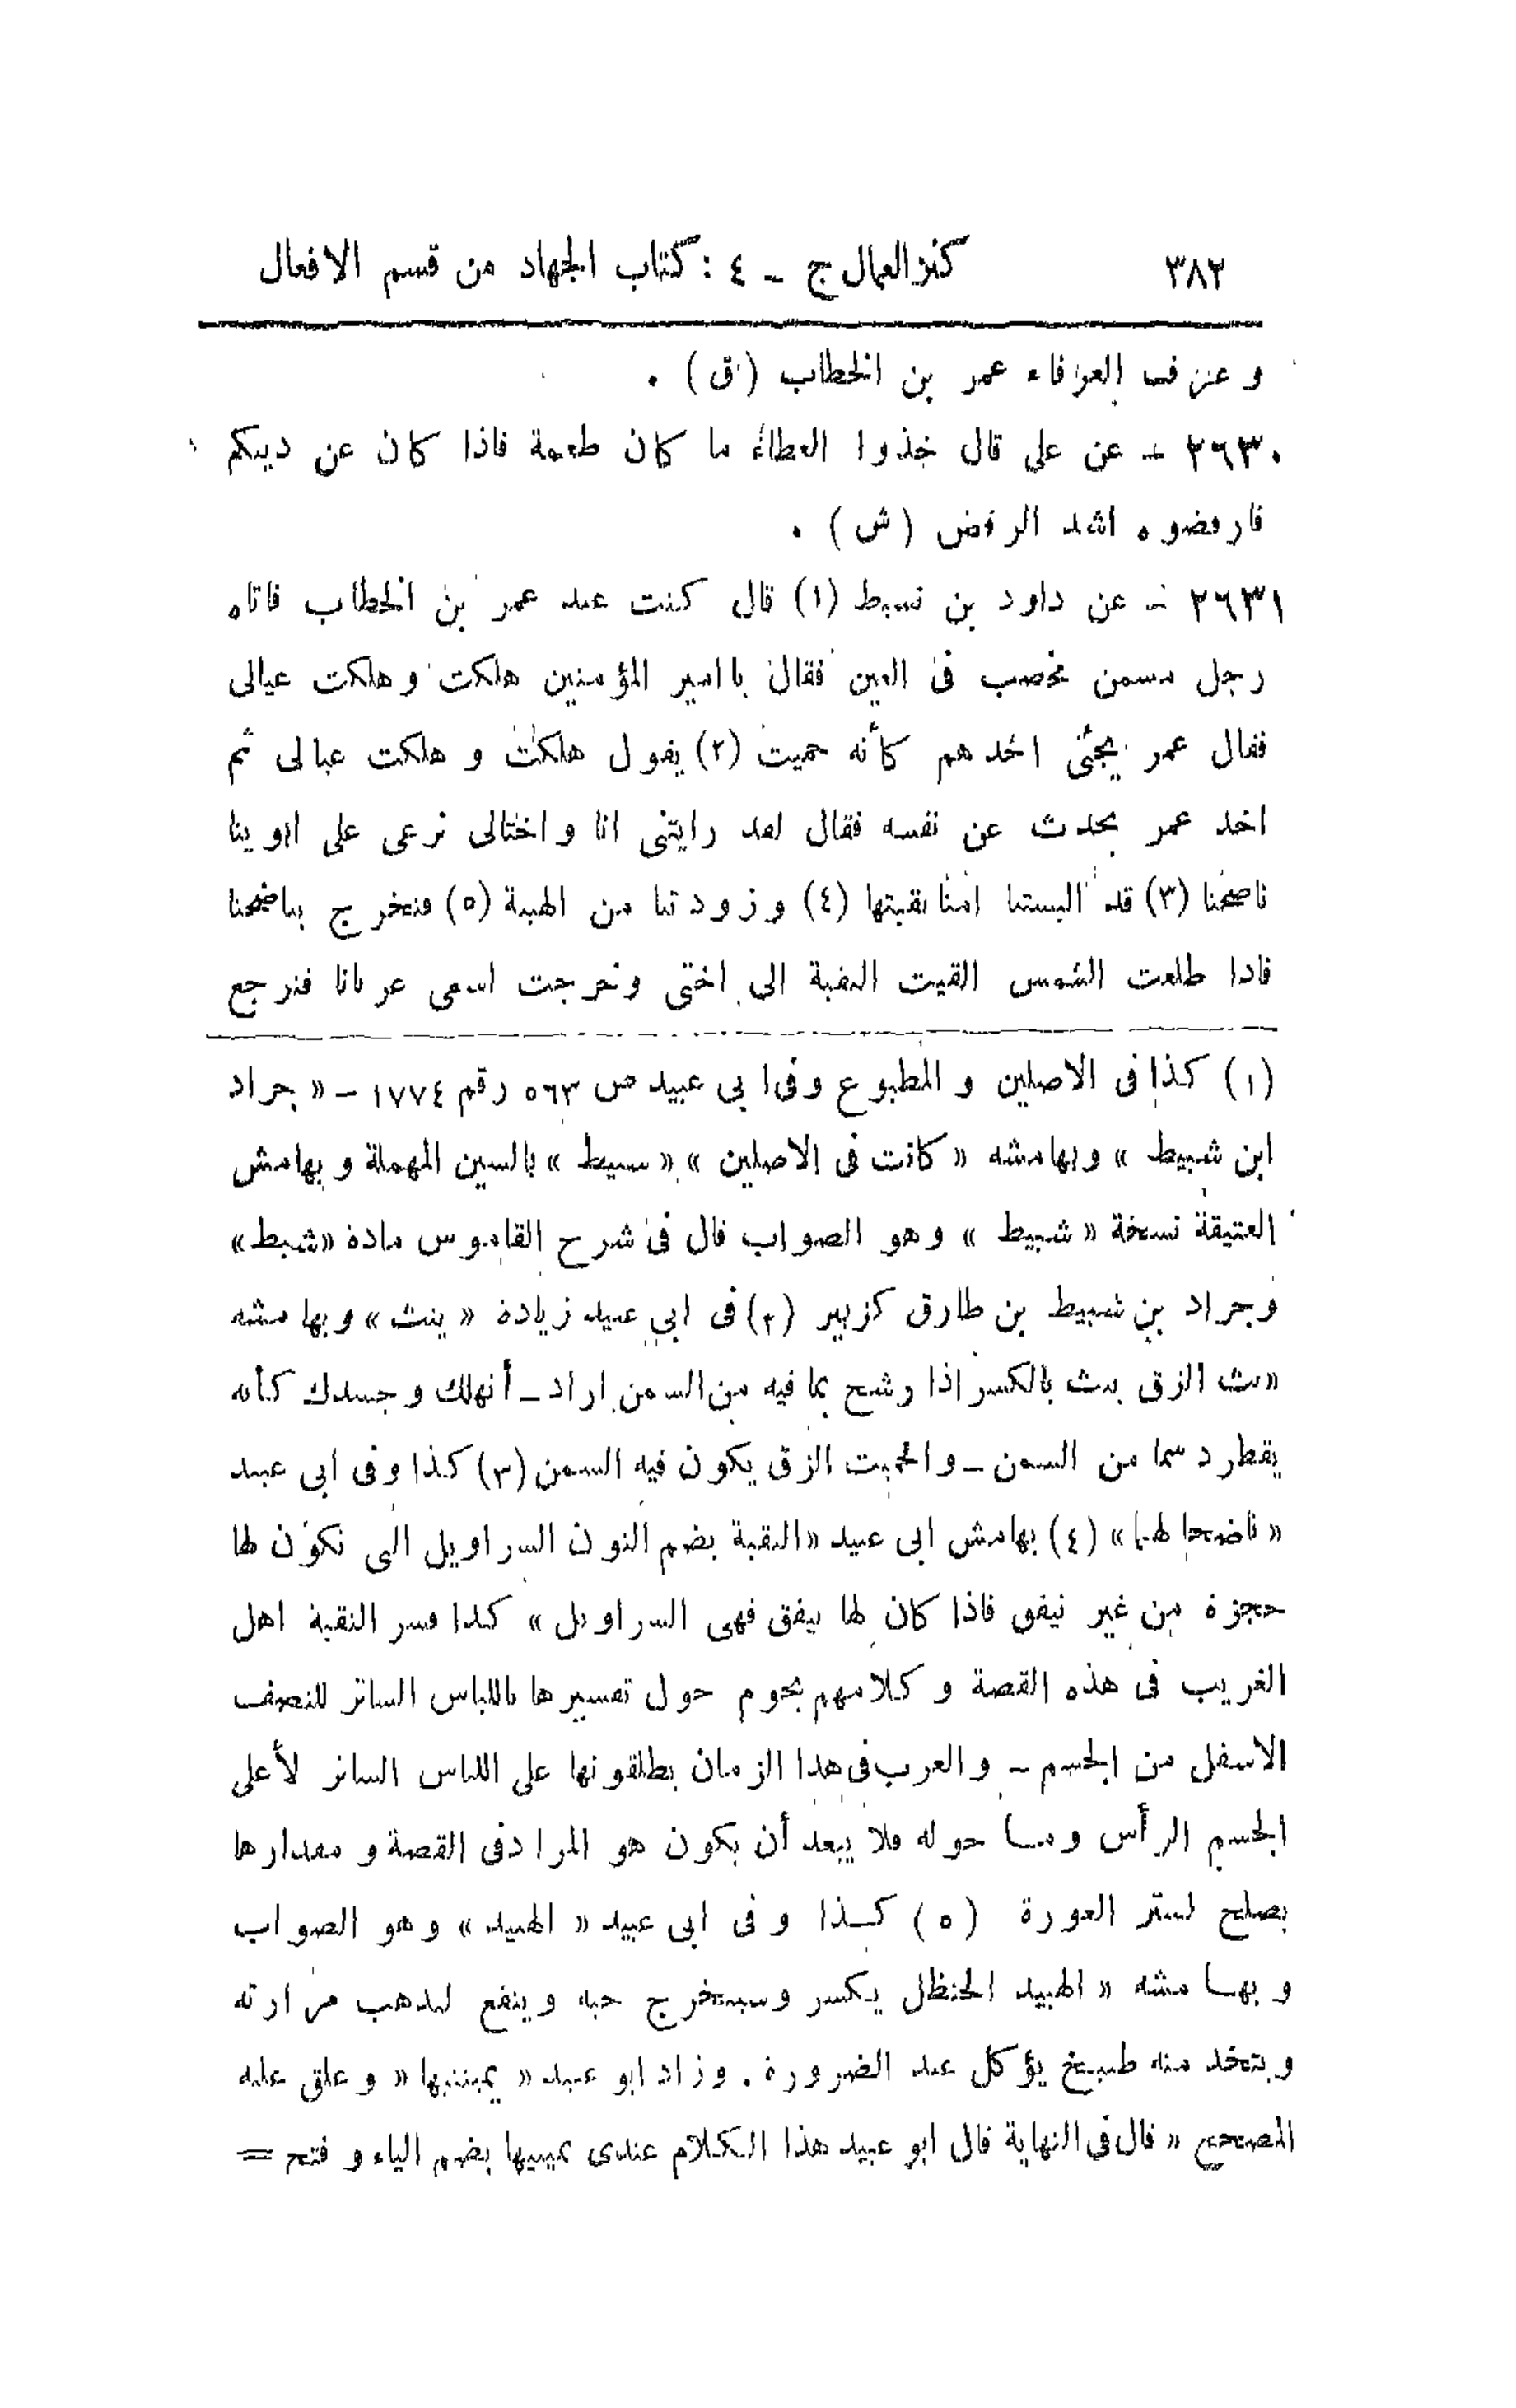 ٣٨٢ كنز العمال ج - ٤ : كتاب الجهاد من قسم الافعال
و عرف العرفاء عمر بن الخطاب (ق) .
٢٦٣٠ - عن على قال خذوا العطاء ما كان طعمة فاذا كان عن دينكم
فارفضوه اشد الرفض (ش) .
٢٦٣١ - عن داود بن نسيط (١) قال كنت عند عمر بن الخطاب فاتاه
رجل مسمن مخصب فى العين فقال يا امير المؤمنين هلكت و هلكت عيالى
فقال عمر يجئى احدهم كأنه حميت (٢) يقول هلكت و هلكت عيالى ثم
اخذ عمر يحدث عن نفسه فقال لقد رايتنى انا و اختالى نرعى على ابوينا
ناضحنا (٣) قد البستنا امنا نقبتها (٤) و زودتنا من الهبة (٥) فنخرج بناضحنا
فاذا طلعت الشمس القيت النقبة الى اختى وخرجت اسعى عريانا فنرجع
(١) كذا فى الاصلين و المطبوع وفى ابى عبيد ص ٥٦٣ رقم ١٧٧٤ - « جراد
ابن شبيط » وبهامشه « كانت فى الاصلين » « سبيط » بالسين المهملة و بهامش
العتيقة نسخة « شبيط » وهو الصواب قال فى شرح القاموس مادة «شبط»
وجراد بن شبيط بن طارق كزبير (٢) فى ابى عبيد زيادة « ينث » و بهامشه
«نث الزق ينث بالكسر اذا رشح بما فيه من السمن اراد - أنهلك و جسدك كأنه
يقطر دسما من السمن - و الحميت الزق يكون فيه السمن (٣) كذا وفى ابى عبيد
« ناضحا لهما » (٤) بهامش ابى عبيد « النقبة بضم النون السراويل التى تكون لها
حجزة من غير نيفق فاذا كان لها نيفق فهى السراويل » كذا فسر النقبة اهل
الغريب فى هذه القصة و كلامهم يحوم حول تفسيرها باللباس الساتر للنصف
الاسفل من الجسم - و العرب فى هذا الزمان يطلقونها على اللباس الساتر لأعلى
الجسم الرأس وما حوله فلا يبعد أن يكون هو المراد فى القصة و مقدارها
يصلح لستر العورة (٥) كذا و فى ابى عبيد « الهبيد » و هو الصواب
و بهامشه « الهبيد الحنظل يكسر و يستخرج حبه و ينقع لتذهب مرارته
و يتخذ منه طبيخ يؤكل عند الضرورة . و زاد ابو عبيد « يمينتيها » و علق عليه
المصحح « قال فى النهاية قال ابو عبيد هذا الكلام عندى يمينيها بضم الياء و فتح =